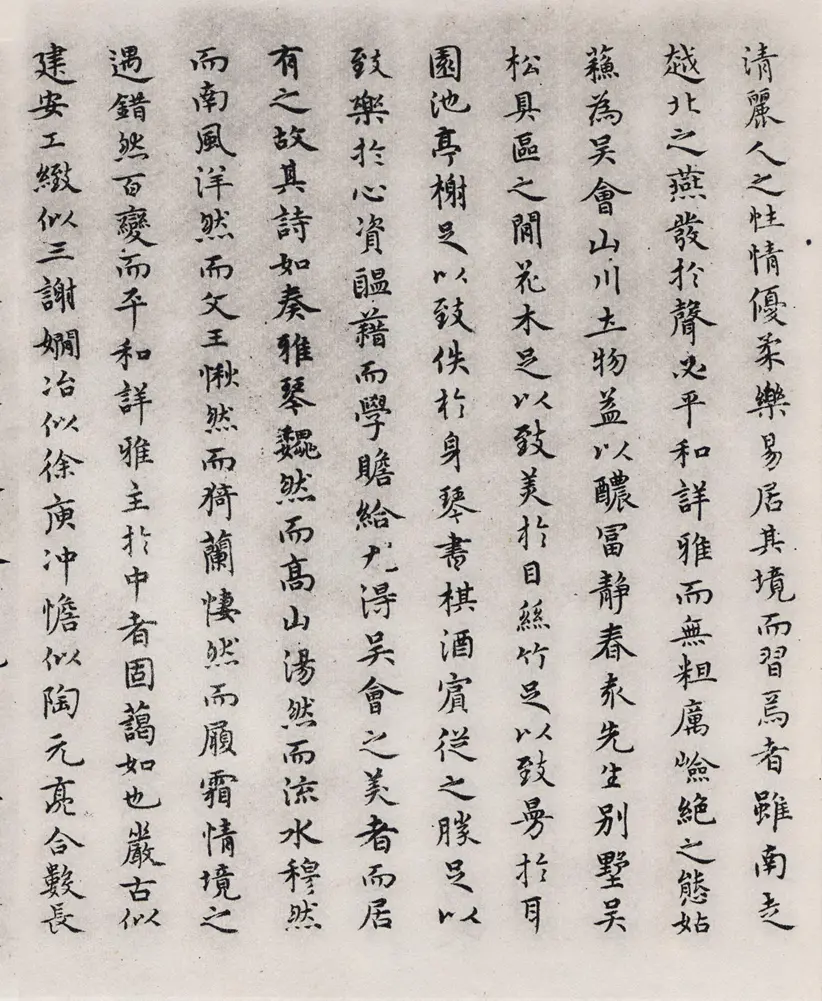 清麗人之性情優柔樂易居其境而習焉者雖南走
越北之燕發於聲必平和詳雅而無粗厲嶮絕之態姑
蘓為吳會山川土物益以醲冨靜春袁先生別墅吳
松具區之間花木足以致美於目絲竹足以致曼於耳
園池亭榭足以致佚於身琴書棋酒賓從之勝足以
致樂於心資醞藉而學贍給尤得吳會之美者而居
有之故其詩如奏雅琴巍然而高山湯然而流水穆然
而南風洋然而文王愀然而猗蘭悽然而履霜情境之
遇錯然百變而平和詳雅主於中者固藹如也嚴古似
建安工緻似三謝嫺冶似徐庾冲憺似陶元亮合數長